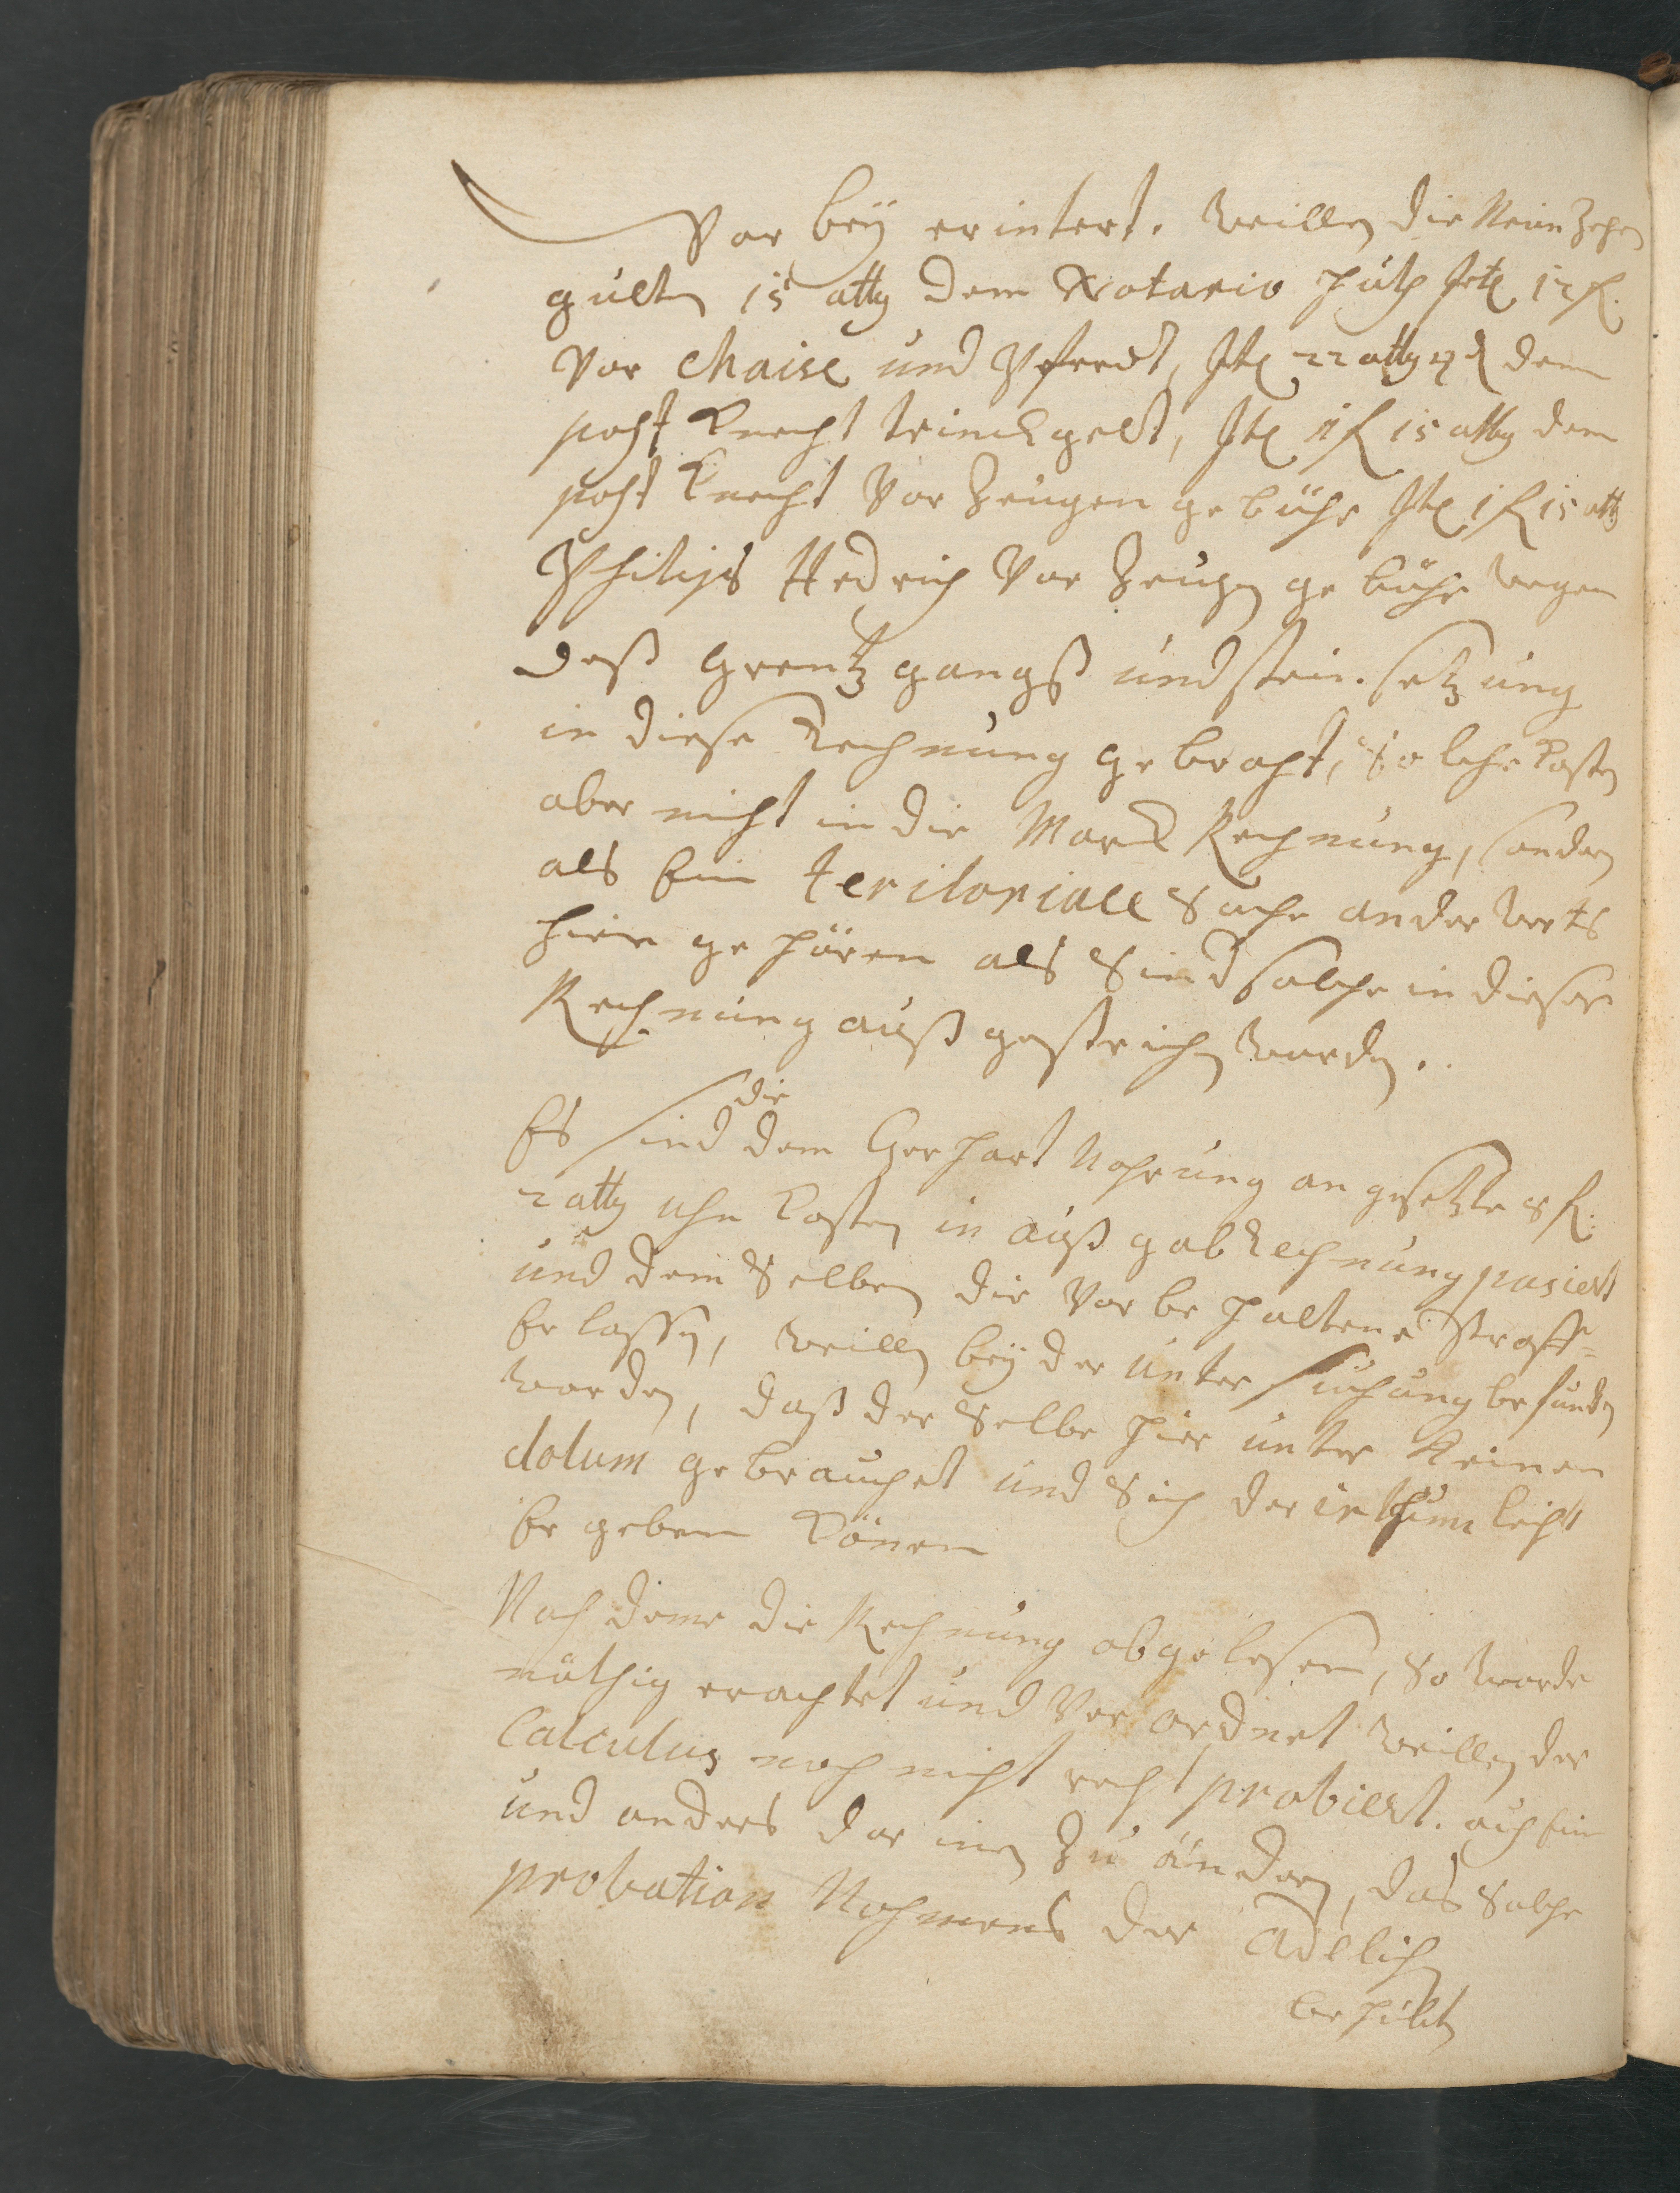 Vor beÿ erintert. weillen die Neün Zehen
gulten 15 atbg dem Notario Jtem 12 fl.
Vor Chaise und Pferdt, Jtem 22 atbg 4 d dem
post Knecht trinckgeldt, Jtem 1 fl 15 atbg dem
post Knecht Vor Zeugen gebühr Jtem 1 fl 15 atb
Philips Hedrich Vor Zeugen gebühr wegen
deß Grentz gangß und stein setzung
in diese Rechnung gebracht, Solche Kosten
aber nicht in die Marck Rechnung, sondern
als Ein teritoriall Sache anderwerts
hien gehören als Sind solche in dieser
Rechnung auß gestrichen worden.
die
Es sind dem Gerhart Nohrung angesetzte 8 fl.
2 atbg uhn Kosten in auß gab Rechnung pasiert
und dem Selben die Vor behaltene Straff
Er lassen, weillen beÿ der unter suchung befunden
worden, daß der Selbe hier unter Keinen
dolum gebrauchet und Sich der irthum leicht
Er geben Könen
Nach deme die Rechnung abgelesen, So worde
nöthig erachtet und Ver ordnet weillen der
Calculus noch nicht recht probiert. auch Ein
und anders dar inen Zu ändern, das Solche
probation Nahmens der Adelich